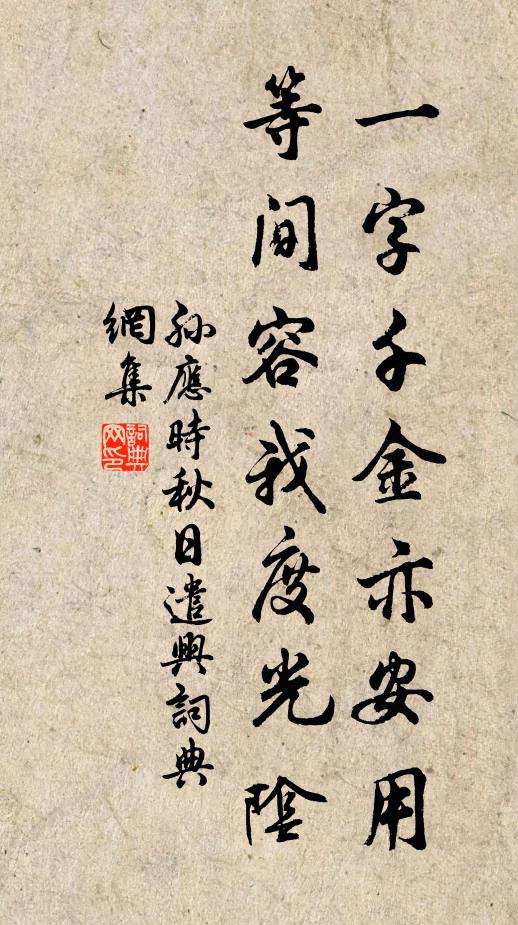 一字千金亦安用
等间容我度光陰
孙應時秋日遣興詞典
網集
詞典
网印